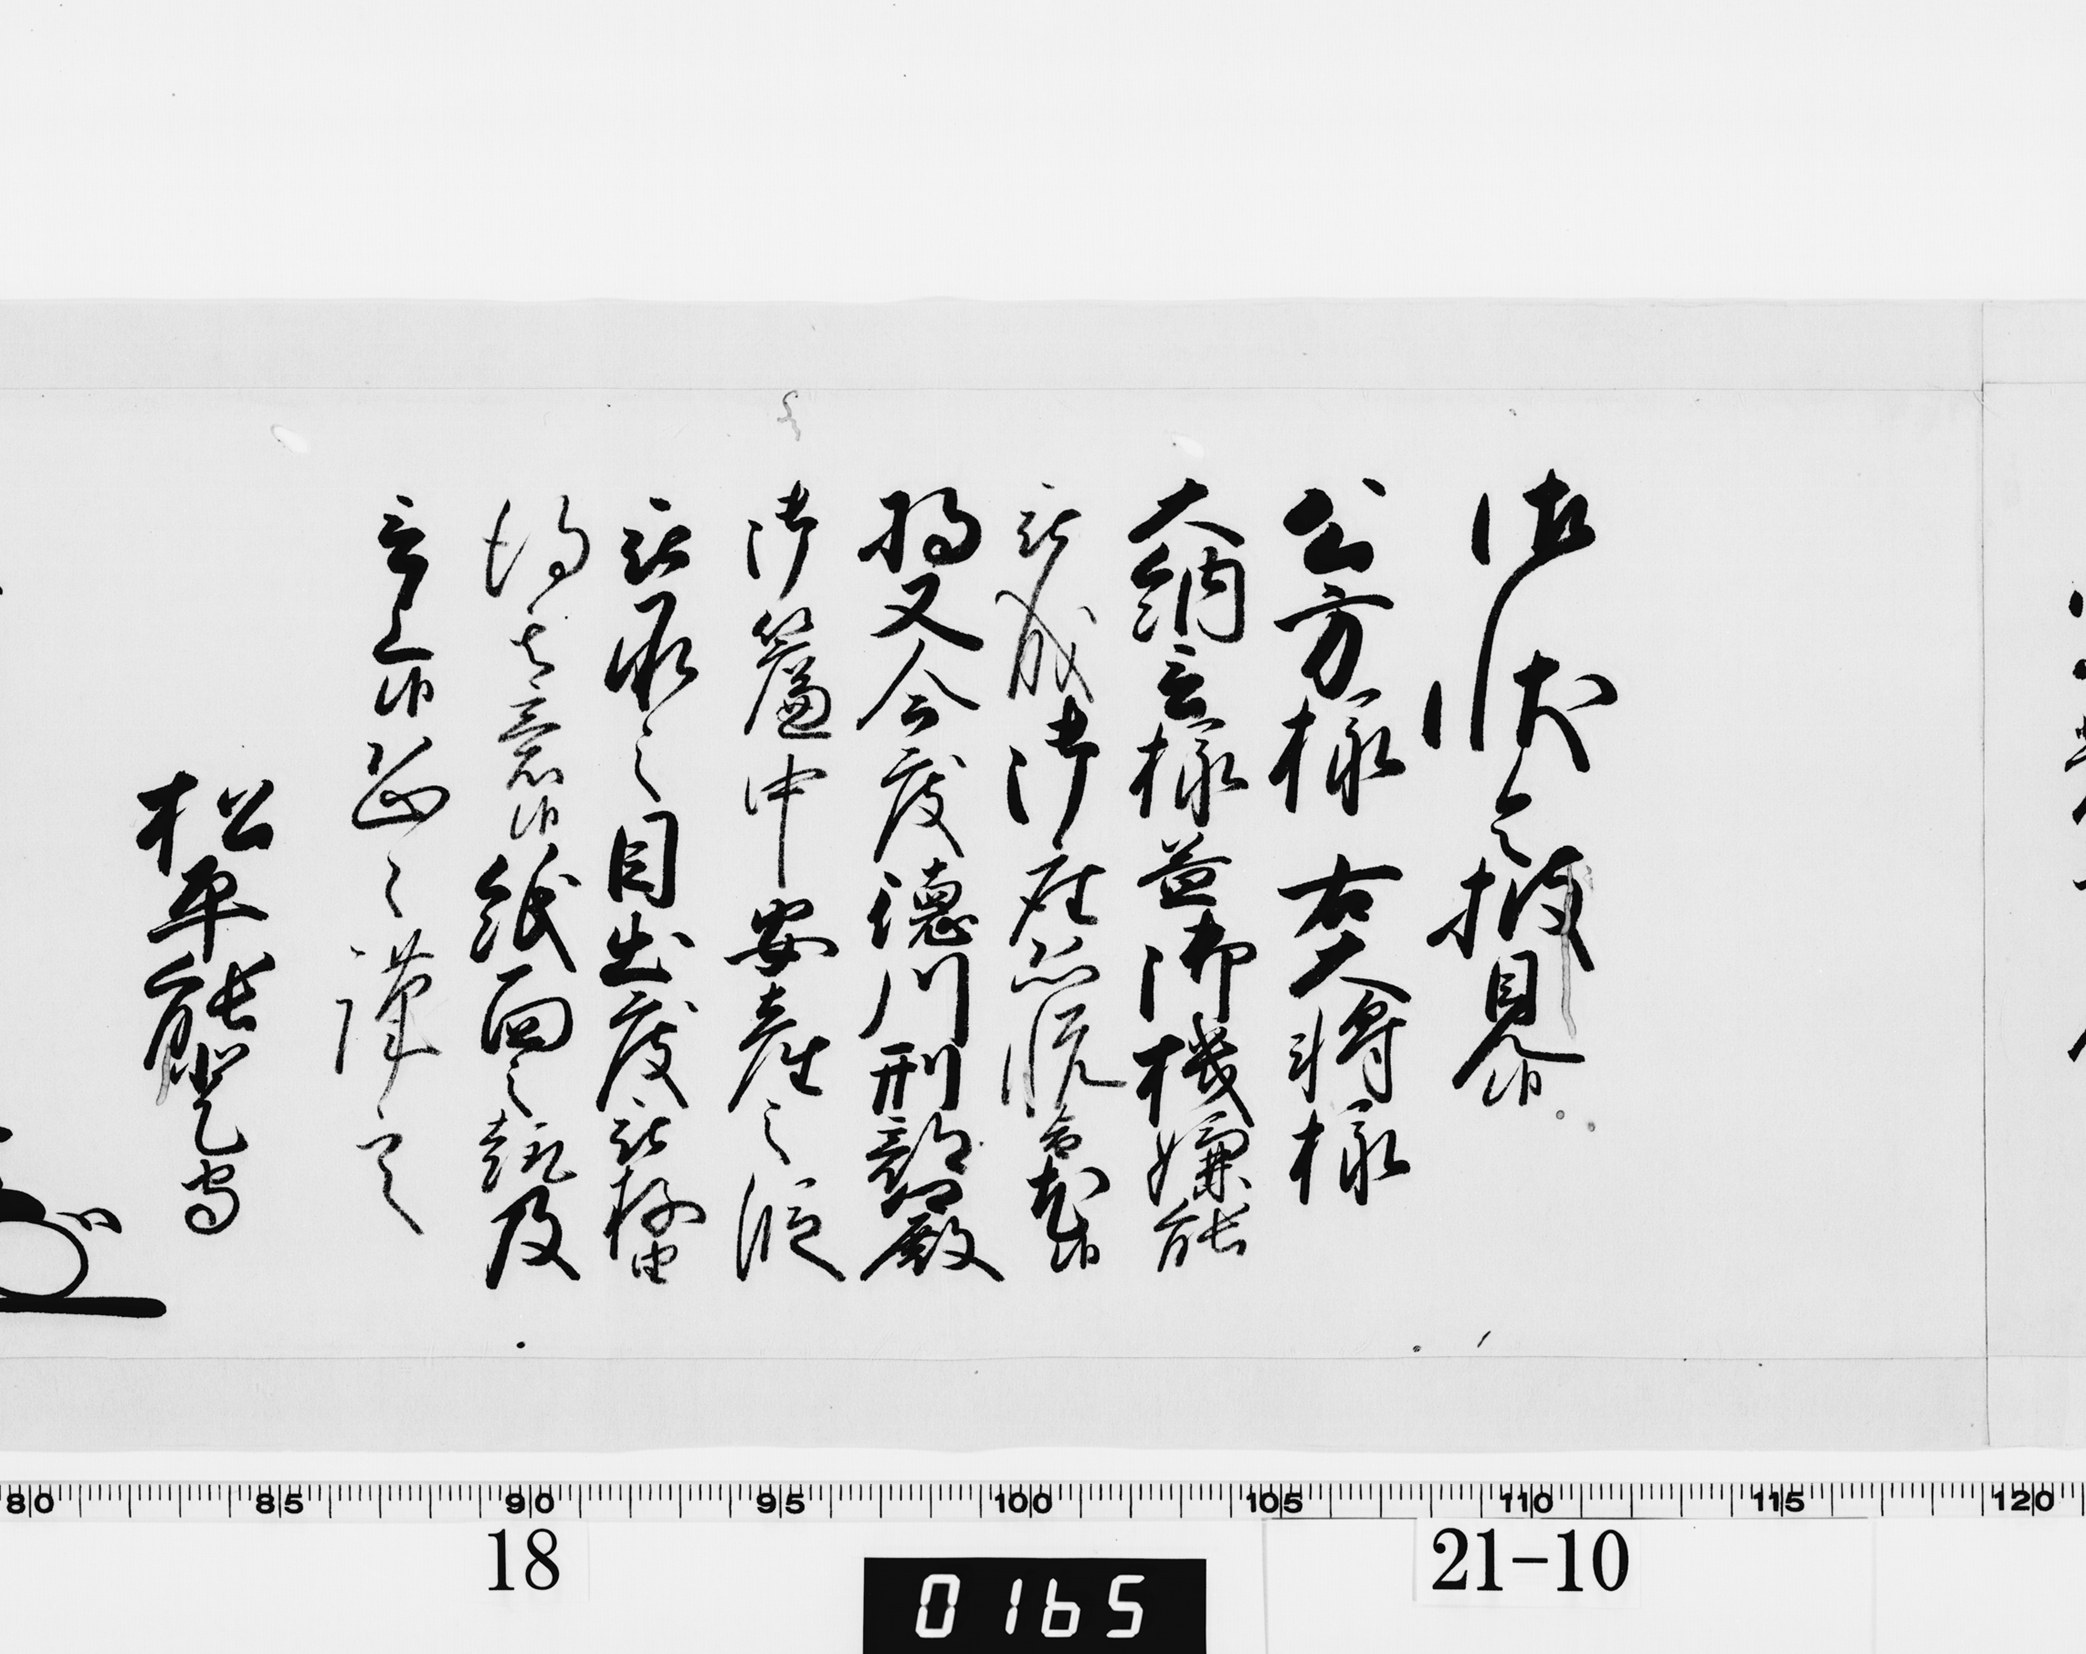 御状令披見候
公方様 右大将様
大納言様益御機嫌能
被成御座恐悦旨尤候
将又今度徳川刑部殿
御簾中安産之段
被承之目出度被存由
得其意候紙面之趣及
言上候恐々謹言
松平能登守
80 85 90 95 100 105 110 115 120
18
0165
21-10